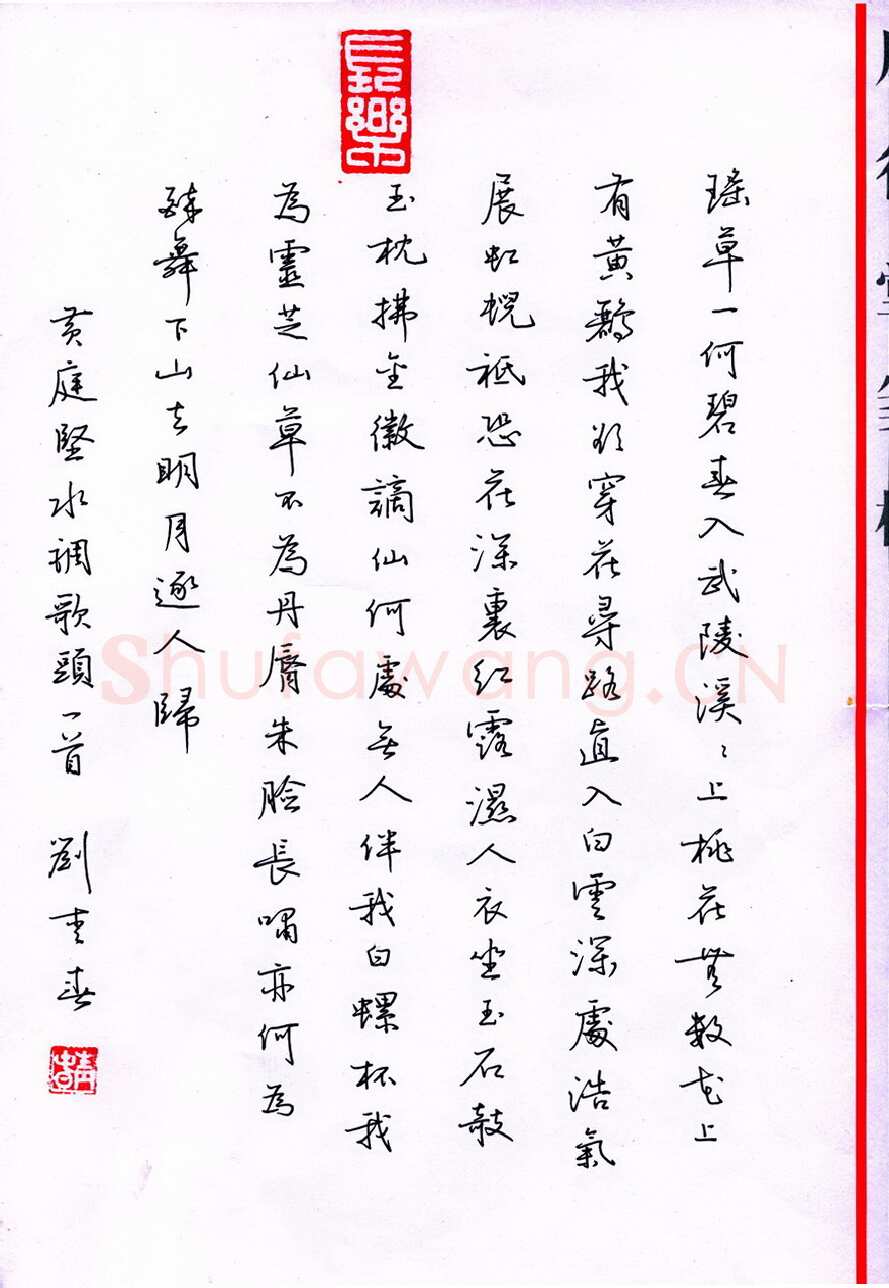 長樂
瑤草一何碧春入武陵溪〻上桃花無數花上
有黃鸝我欲穿花尋路直入白雲深處浩氣
展虹蜺祗恐花深裏紅露濕人衣坐玉石敧
玉枕拂金徽謫仙何處無人伴我白螺杯我
為靈芝仙草不為丹脣朱臉長嘯亦何為
醉舞下山去明月逐人歸
黃庭堅水調歌頭一首 劉青春
Shufawang.CN